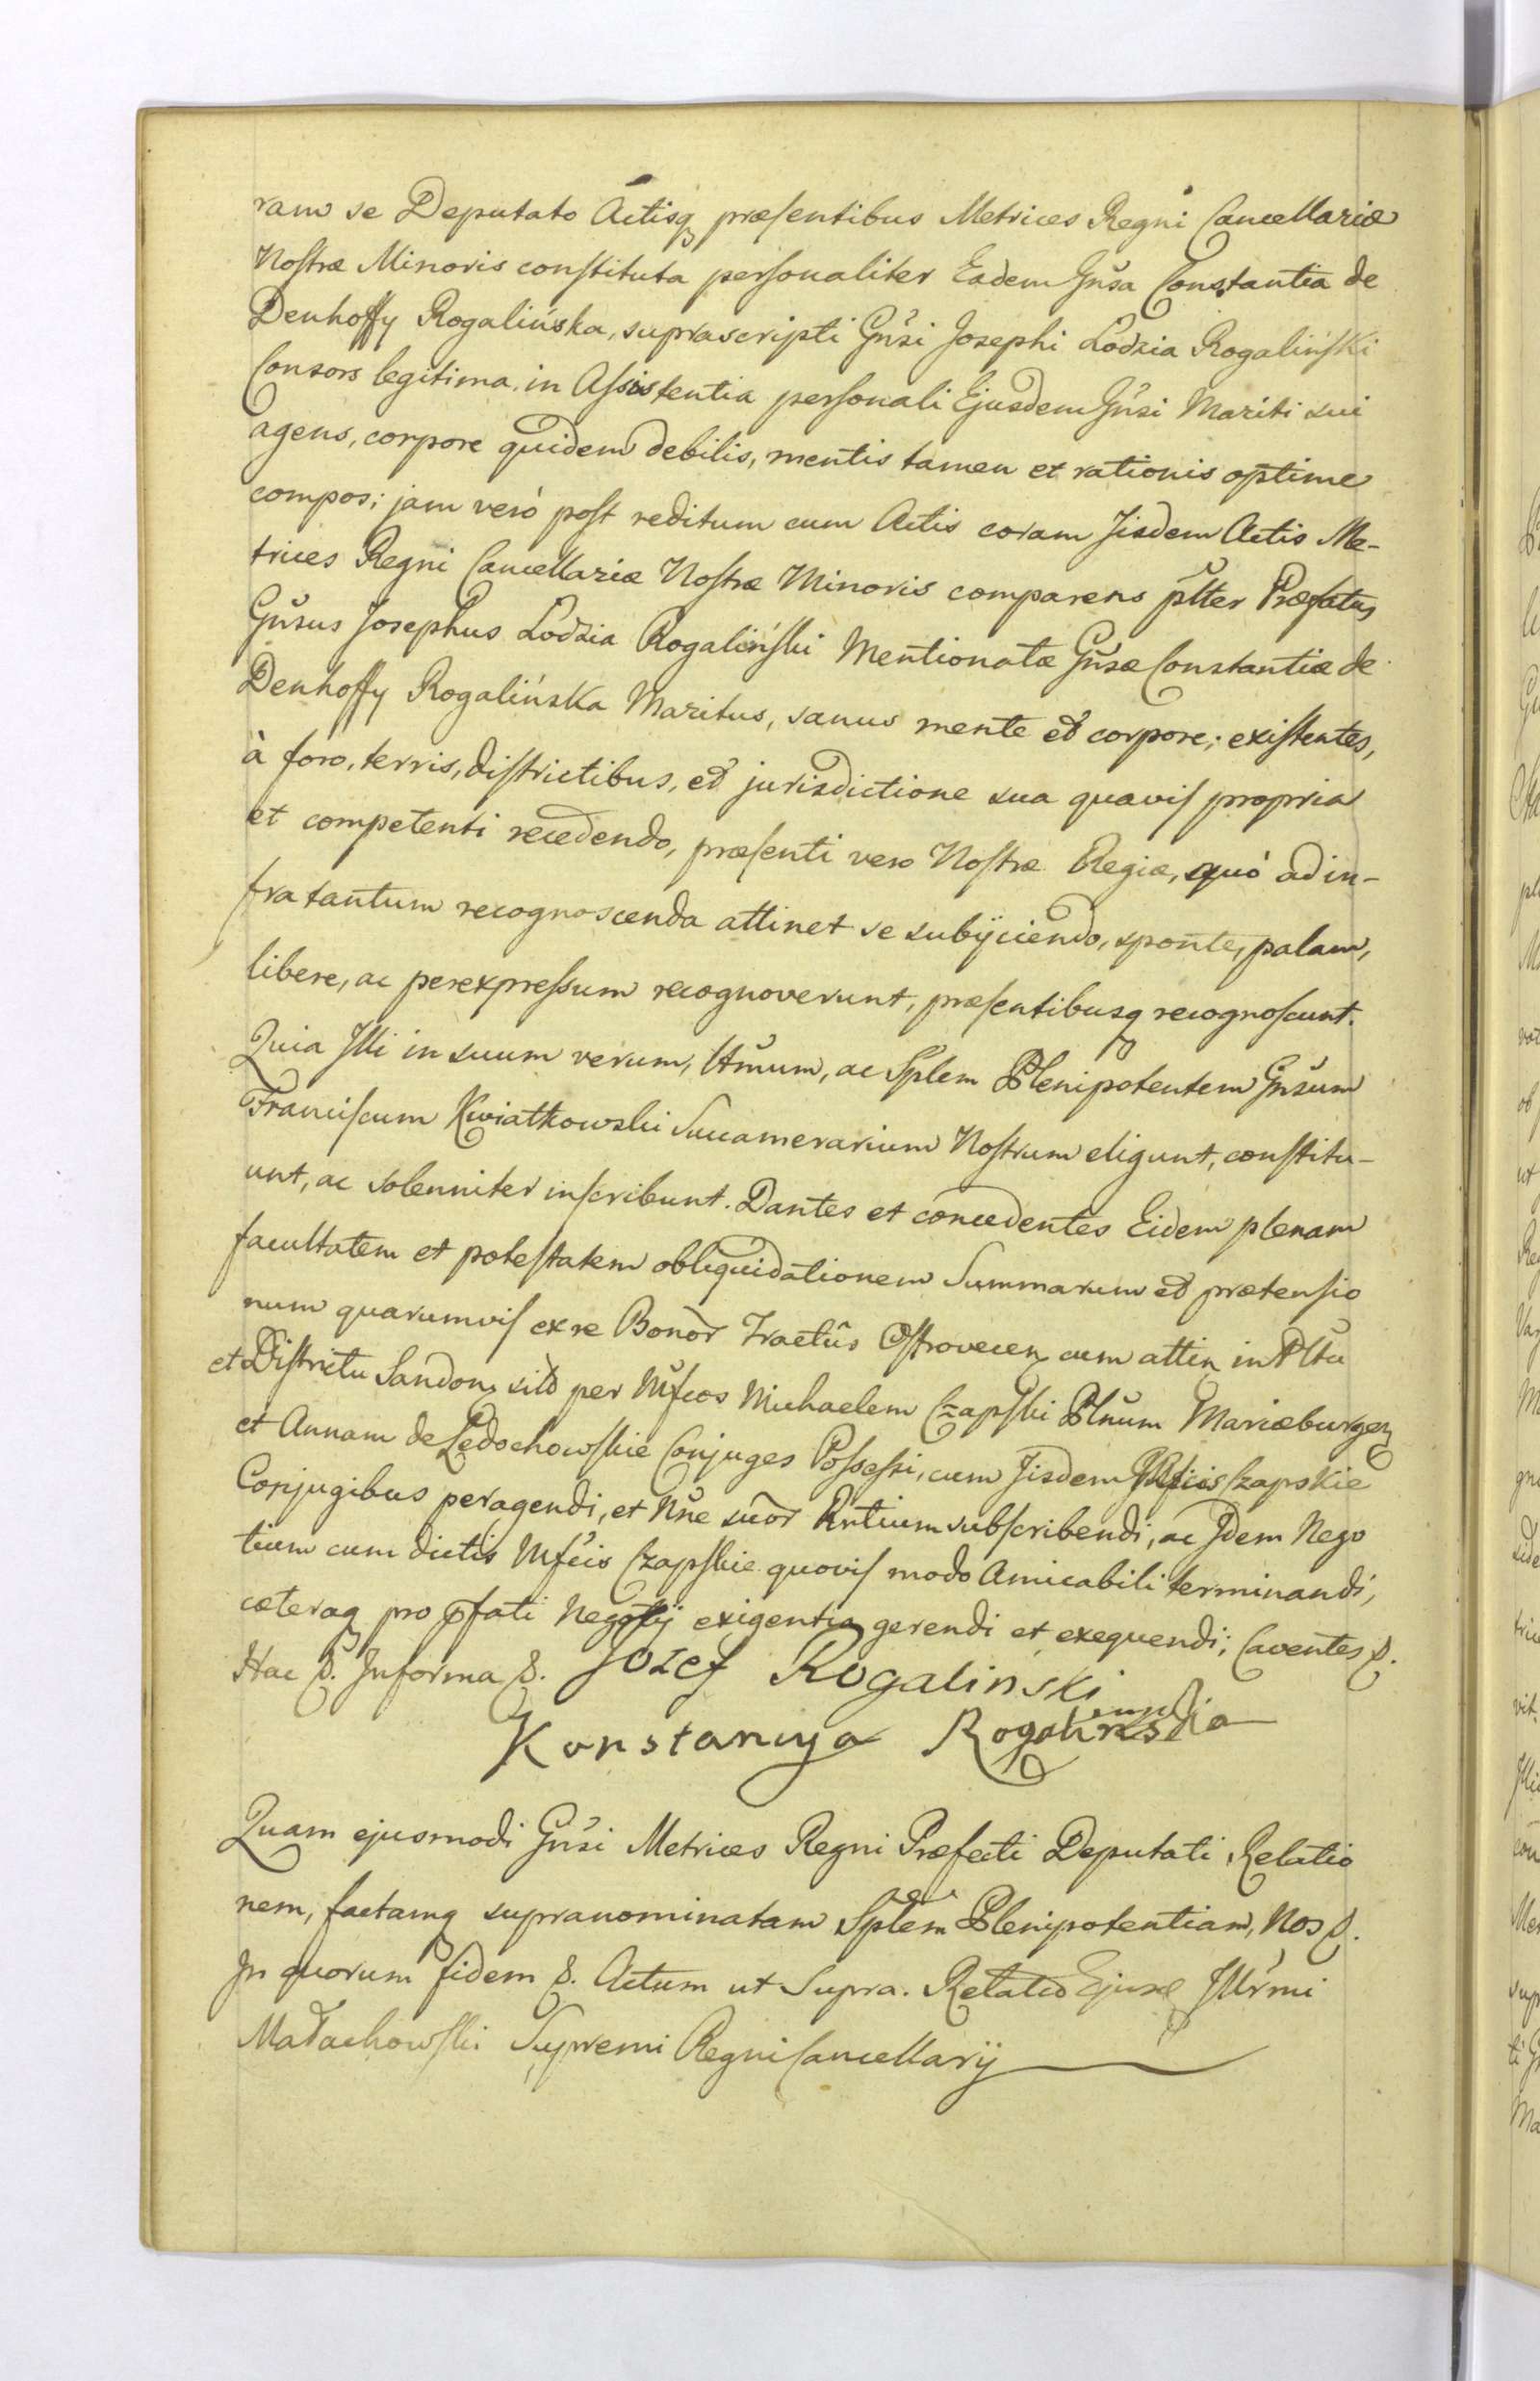 ram se Deputato Actisq præsentibus Metrices Regni Cancellariæ
Nostræ Minoris constituta personaliter Eadem Gnsa Constantia de
Denhoffy Rogalińska, suprascripti Gnsi Josephi Lodzia Rogaliński
Consors legitima, in Assistentia personali Ejusdem Gnsi Mariti sui
agens, corpore quidem debilis, mentis tamen et rationis optime
compos; jam verò post reditum cum Actis coram Jisdem Actis Me-
trices Regni Cancellariæ Nostræ Minoris comparens pltter Præfatus
Gnsus Josephus Lodzia Rogaliński Mentionatæ Gnsæ Constantiæ de
Denhoffy Rogalińska Maritus, sanus mente et corpore; existentes,
à foro, terris, districtibus, et jurisdictione sua quavis propria
et competenti recedendo, præsenti vero Nostræ Regiæ, quò ad in-
fra tantum recognoscenda attinet se subijciendo, sponte, palam,
libere, ac per expressum recognoverunt, præsentibusq recognoscunt.
Quia Jlli in suum verum, lttmum, ac Splem Plenipotentem Gnsum
Franciscum Kwiatkowski Succamerarium Nostrum eligunt, constitu-
unt, ac solenniter inscribunt. Dantes et concedentes Eidem plenam
facultatem et potestatem obliquidationem Summarum et prætensio
num quarumvis ex re Bonor Tractûs Ostrovecen cum attin in Plttu
et Districtu Sandom sitò per Mfcos Michaelem Czapski Plnum Mariæburgen
et Annam de Ledochowskie Conjuges Possessi, cum Jisdem Mfcis Czapskie
Conjugibus peragendi, et Nne suor Pntium subscribendi, ac Jdem Nego
tium cum dictis Mfcis Czapskie quovis modo Amicabili terminandi,
cæteraq pro pfati Negotij exigentia gerendi et exequendi; Caventes &.
Hac &. Jnforma &. Jozef Rogalinski
Konstancya Rogalinska
Quam ejusmodi Gnsi Metrices Regni Præfecti Deputati Relatio
nem, factamq supranominatam Splem Plenipotentiam, Nos &.
Jn quorum fidem &. Actum ut Supra. Relatio Ejusd Jllrmi
Małachowski Supremi Regni Cancellarij